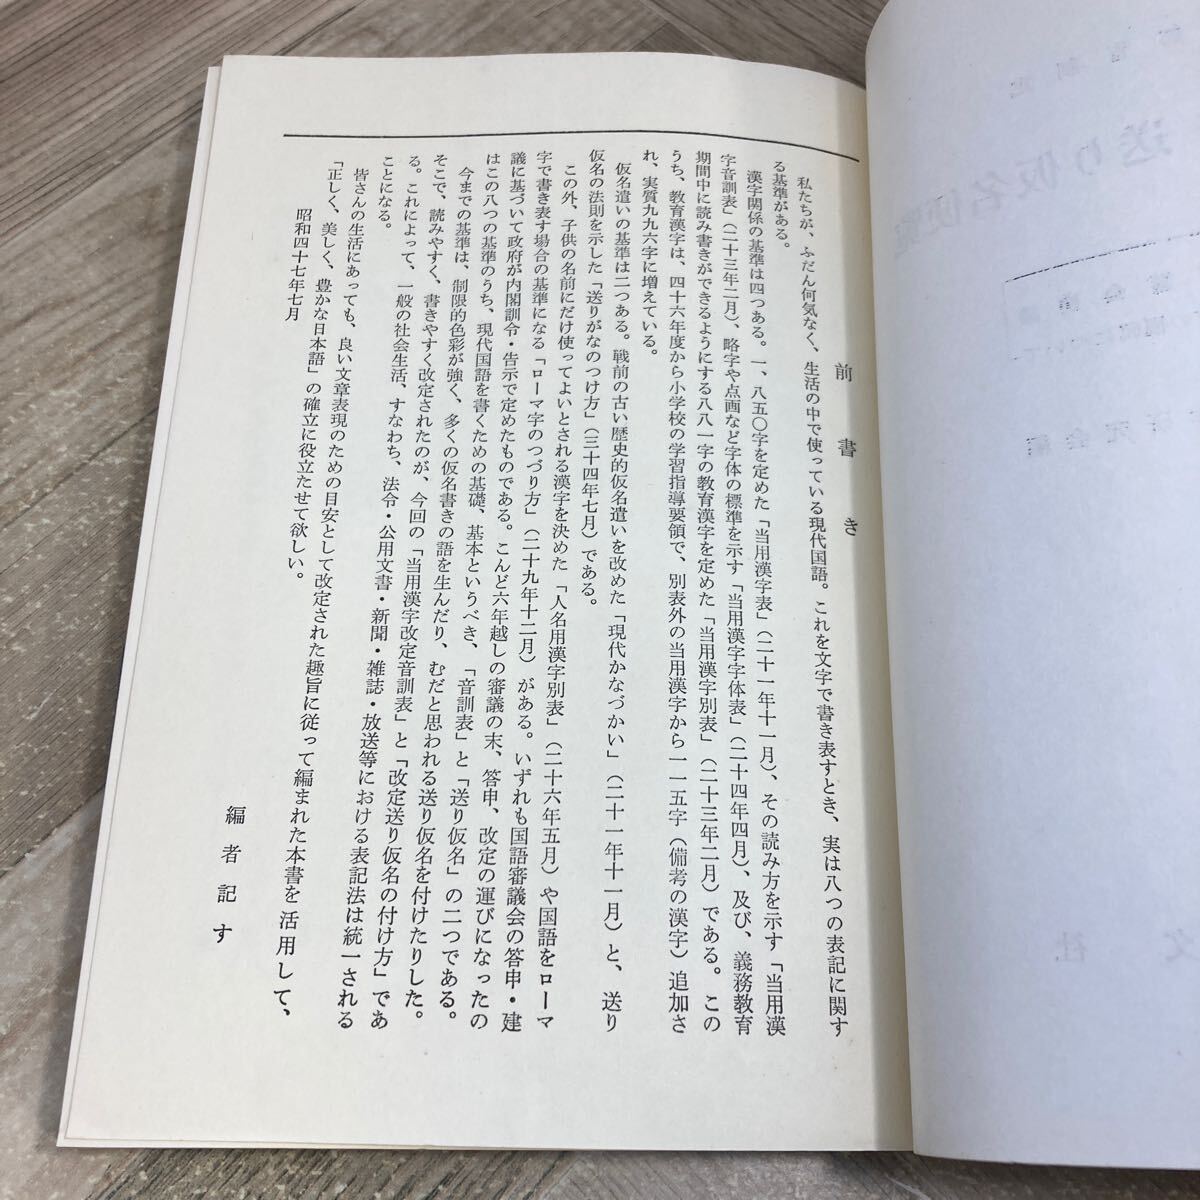 前書き
私たちが、ふだん何気なく、生活の中で使っている現代国語。これを文字で書き表すとき、実は八つの表記に関す
る基準がある。
漢字関係の基準は四つある。一、八五〇字を定めた「当用漢字表」（二十一年十一月）、その読み方を示す「当用漢
字音訓表」（二十三年二月）、略字や点画など字体の標準を示す「当用漢字字体表」（二十四年四月）、及び、義務教育
期間中に読み書きができるようにする八八一字の教育漢字を定めた「当用漢字別表」（二十三年二月）である。この
うち、教育漢字は、四十六年度から小学校の学習指導要領で、別表外の当用漢字から一一五字（備考の漢字）追加さ
れ、実質九九六字に増えている。
仮名遣いの基準は二つある。戦前の古い歴史的仮名遣いを改めた「現代かなづかい」（二十一年十一月）と、送り
仮名の法則を示した「送りがなのつけ方」（三十四年七月）である。
この外、子供の名前にだけ使ってよいとされる漢字を決めた「人名用漢字別表」（二十六年五月）や国語をローマ
字で書き表す場合の基準になる「ローマ字のつづり方」（二十九年十二月）がある。いずれも国語審議会の答申・建
議に基づいて政府が内閣訓令・告示で定めたものである。こんど六年越しの審議の末、答申、改定の運びになったの
はこの八つの基準のうち、現代国語を書くための基礎、基本というべき、「音訓表」と「送り仮名」の二つである。
今までの基準は、制限的色彩が強く、多くの仮名書きの語を生んだり、むだと思われる送り仮名を付けたりした。
そこで、読みやすく、書きやすく改定されたのが、今回の「当用漢字改定音訓表」と「改定送り仮名の付け方」であ
る。これによって、一般の社会生活、すなわち、法令・公用文書・新聞・雑誌・放送等における表記法は統一される
ことになる。
皆さんの生活にあっても、良い文章表現のための目安として改定された趣旨に従って編まれた本書を活用して、
「正しく、美しく、豊かな日本語」の確立に役立たせて欲しい。
昭和四十七年七月
編者記す